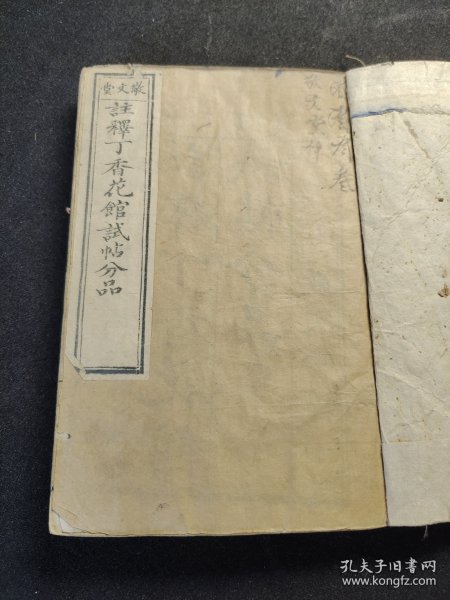 敬文堂
註釋丁香花館試帖分品
孔夫子旧书网
www.kongfz.com